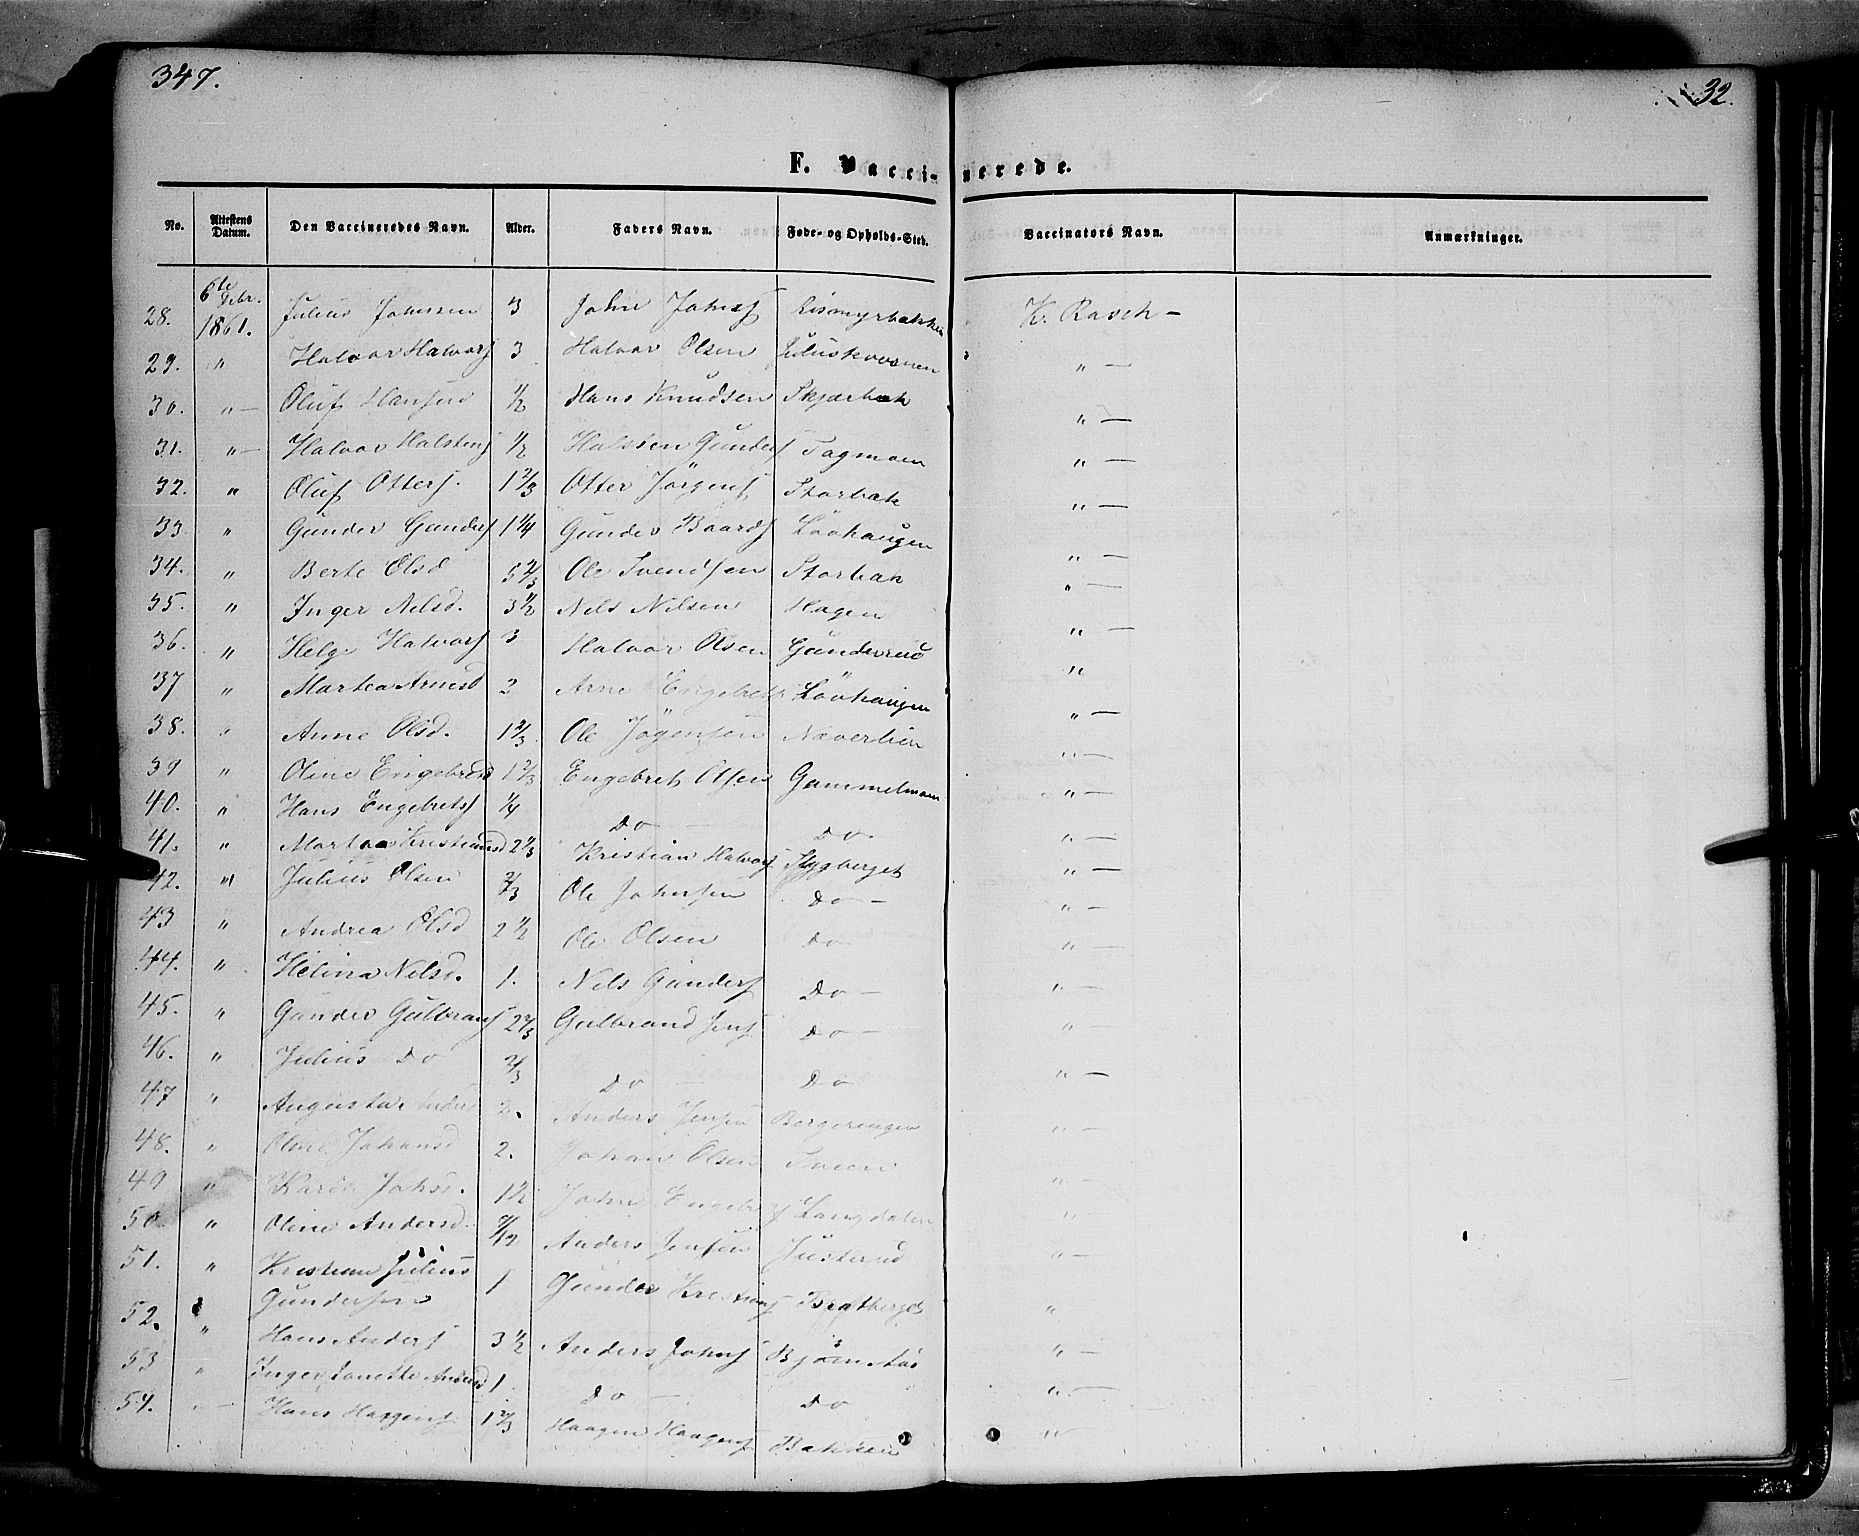 347.
32.
F. Vaccinerede.
No. Attestens Datum. Den Vaccineredes Navn. Alder. Faders Navn. Føde- og Opholds-Sted. Vaccinators Navn. Anmærkninger.
28. 6te Febr. 1861. Julius Johnsen 3 John Johnsf K. Rasch —
29. " Halvor Halvorsf 3 Halvor Olsen " —
30. " — Oluf Hansen 1/2 Hans Knudsen Skjærbæk " —
31. " — Halvor Halstensf 1/2 Halsten Gundersf Tagmoen " —
32. " Oluf Ottersf. 1 2/3 Otter Jörgensf Storbæk " —
33. " Gunder Gundersf 1 1/4 Gunder Baardsf Lövhaugen " —
34. " Berte Olsd 5 2/3 Ole Svendsen Storbæk " —
35. " Inger Nelsd. 3 1/2 Nils Nilsen Hagen " —
36. " Helge Halvorsf 3 Halvor Olsen Gunderrud "
37 " Marthea Arnesd 2 Arne Engebretsf Lövhaugen " —
38. " Anne Olsd. 1 2/3 Ole Jögensen Næverlien " —
39 " Oline Engebresd 1 2/3 Engebret Olsen Gammelmoen " —
40. " Hans Engebretsf 1/4 Do — Do " —
41. " Marthea Kristiansd 2 1/3 Kristian Halvorsf. Stygberget " —
42. " Julius Olsen 2/3 Ole Johnsen Do — " —
43 " Andrea Olsd 2 1/2 Ole Olsen Do " —
44. " Helina Nelsd. 1. Nils Gundersf Do — " —
45. " Gunder Gulbransf 2 2/3 Gulbrand Jensf Do — " —
46. " Julius Do 2/3 Do — Do " —
47 " Augusta Anders 2. Anders Jensen Bergerengen " —
48. " Oline Johansd 2. Johan Olsen Sveen " —
49 " Karen Johsd. 1 1/2 John Engebrsf Langdalen "
50. " Oline Andersd. Anders Jensen Justerud " —
51. " Kristian Julius Gundersen 1 Gunder Kristiansf Brattberget "
52. " Hans Andersf 3 1/2 Anders Johnsf Björnaas " —
53 " Inger Janette Andersd 1 Do — Do " —
54. " — Hans Haagensf 1 2/3 Haagen Haagensf Bakken "